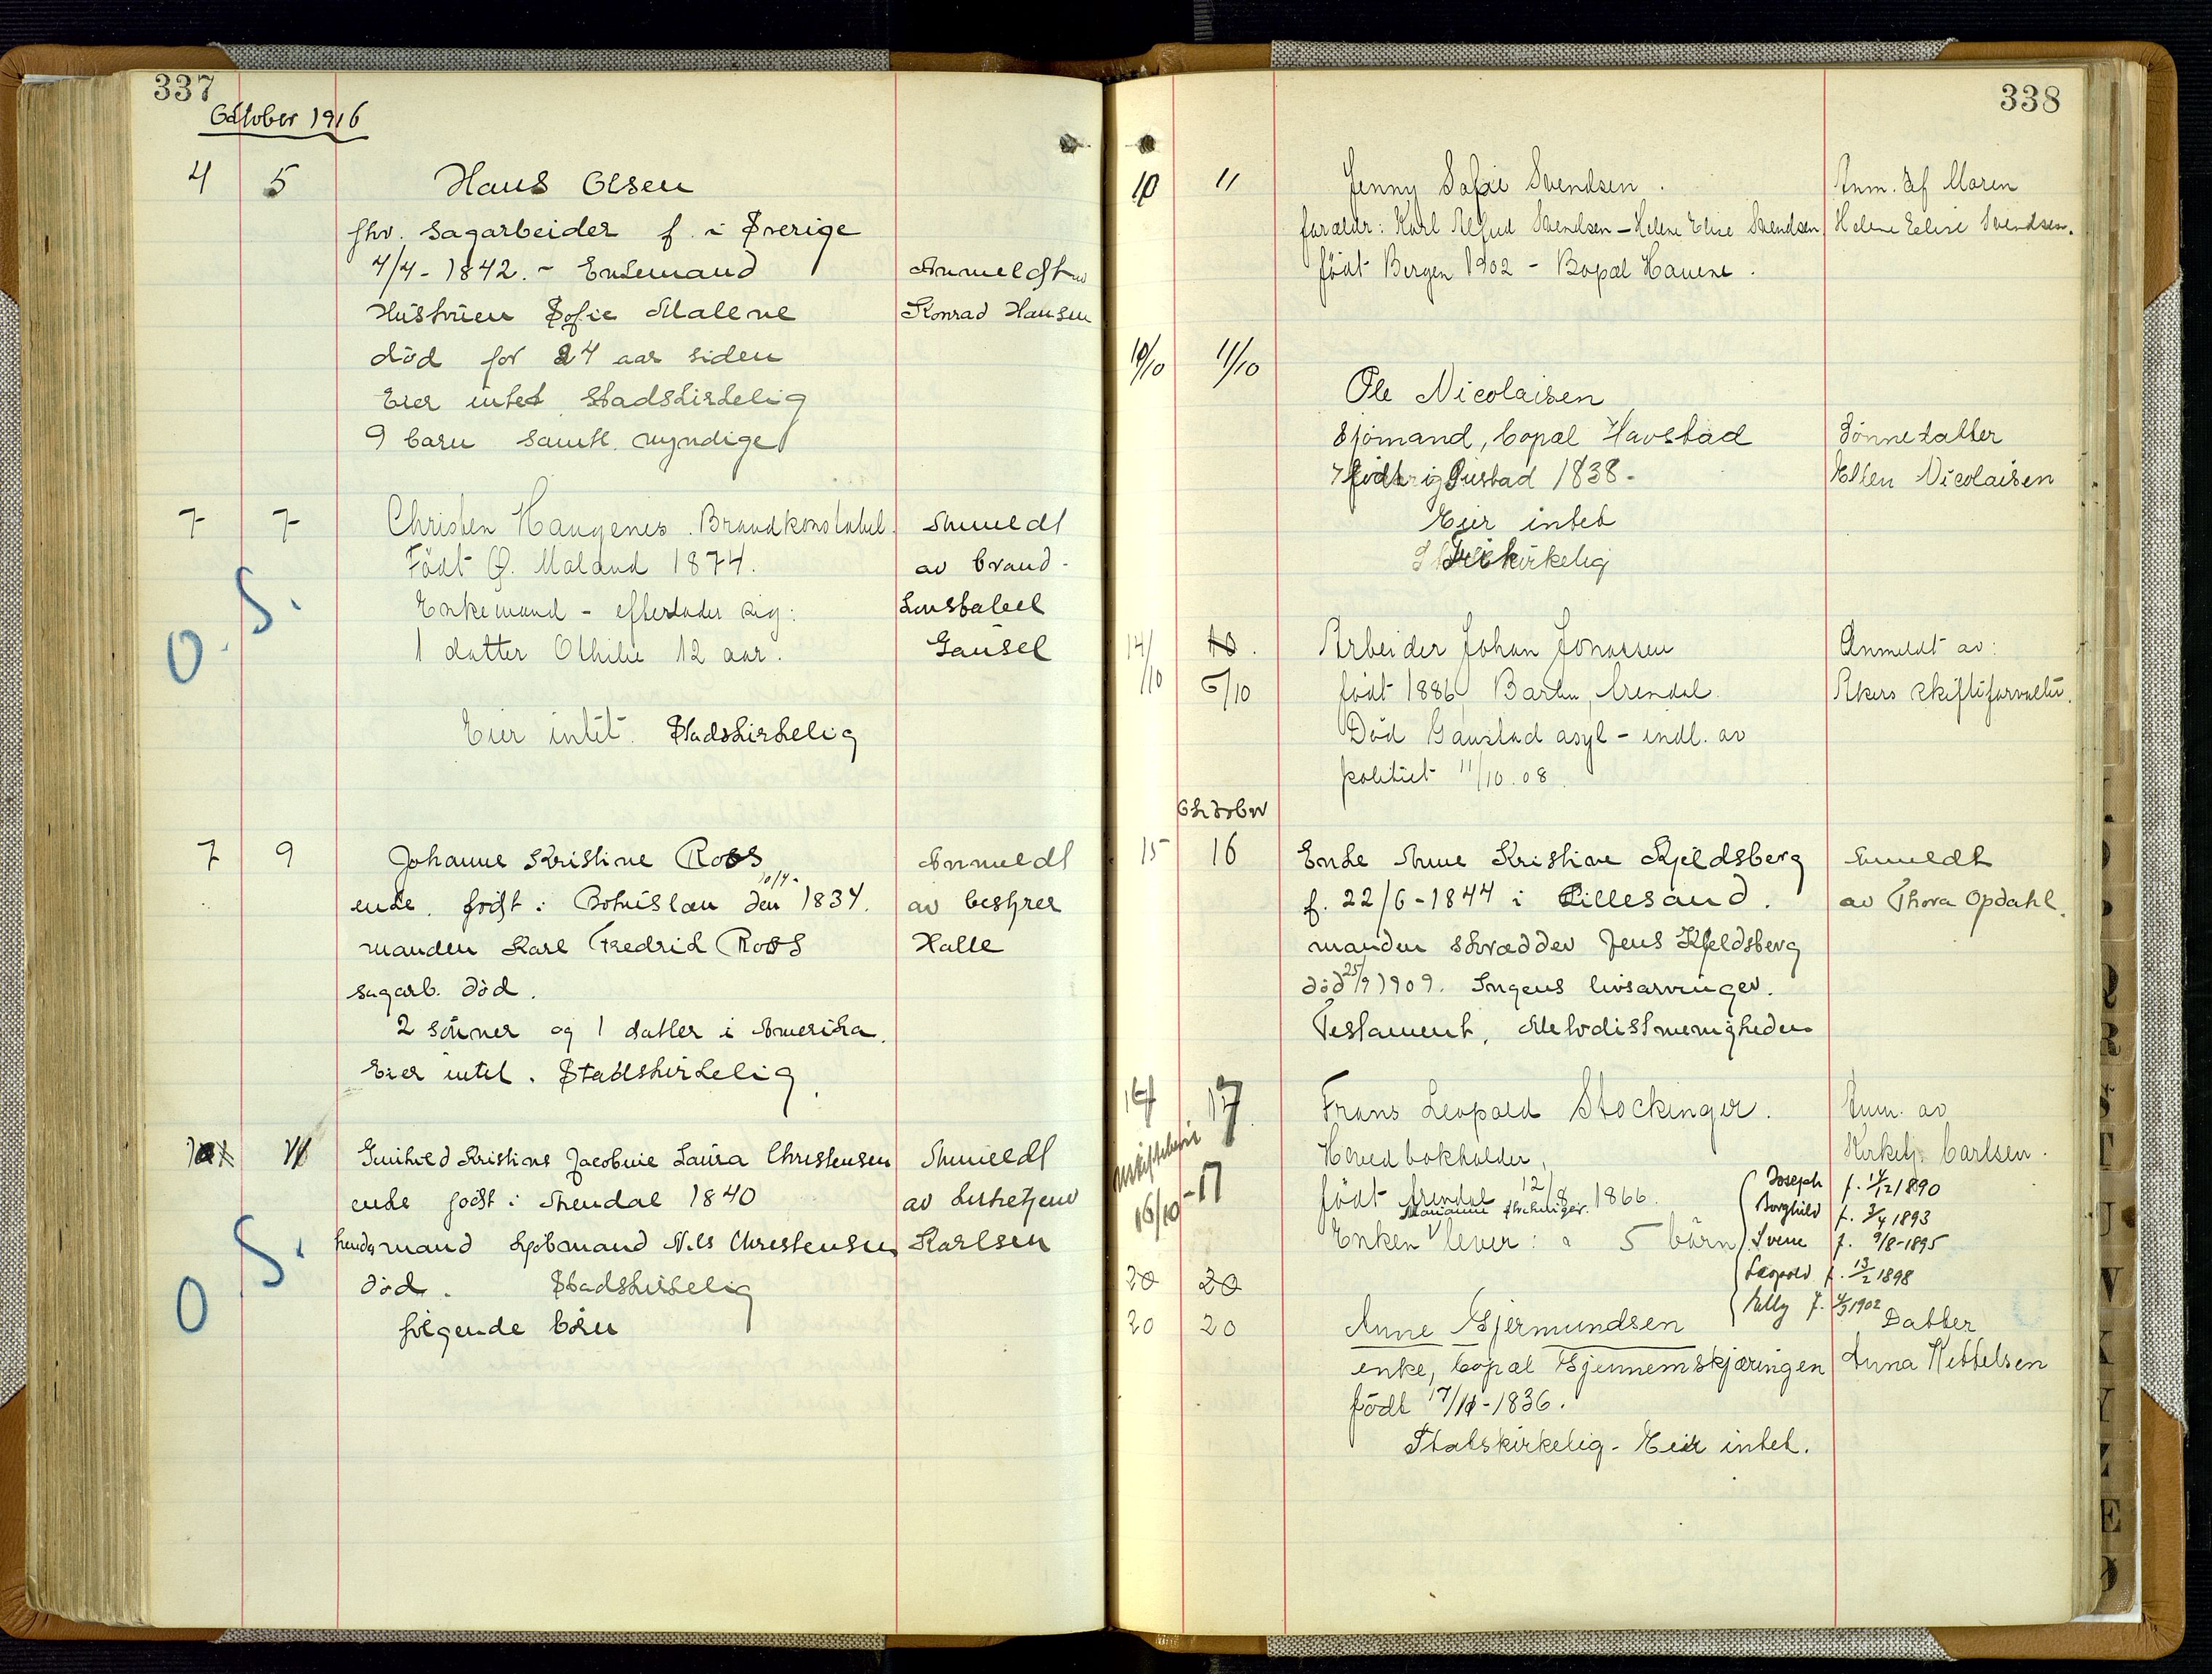 337
Oktober 1916
4 5 Hans Olsen
fhv. sagarbeider f. i Sverige
4/4-1842. - Enkemand Anmeldt av
Hustruen Sofie Malene Konrad Hansen
död for 24 aar siden
Eier intet Stadskirkelig
9 barn samtl. myndige
7 7 Christen Haugenes. Brandkonstabel. Anmeldt
Födt Ø. Moland 1874. av brand-
O. S. Enkemand - efterlader sig: konstabel
1 datter Othilie 12 aar. Gausel
Eier intet. Stadskirkelig
7 9 Johanne Kristine Roos Anmeldt
enke. födt i Bohuslæn den 10/4- 1834. av bestyrer
manden Karl Fredrik Roos Halle
sagarb. död.
2 sönner og 1 datter i Amerika.
Eier intet. Stadskirkelig.
11 Gunhild Kristine Jacobine Laura Christensen Anmeldt
enke födt i Arendal 1840 av kirketjener
O S. hendes mand Sjömand Nils Christensen Karlsen
död. Stadskirkelig
fölgende börn
338
10 11 Jenny Sofie Svendsen. Anm. af Maren
forældr: Karl Alfred Svendsen - Helene Elise Svendsen Helene Elise Svendsen.
födt Bergen 1902 - Bopæl Havene.
10/10 11/10
Ole Nicolaisen
Sjömand, bopæl Havstad Sönnedatter
födt i Gustad 1838. Ellen Nicolaisen
Eier intet
kirkelig
14/10 10. Arbeider Johan Jonassen Anmeldt av:
6/10 födt 1886 Barbu, Arendal. Akers skifteforvalter.
Död Gaustad asyl - indl. av
politiet 11/10.08.
Oktober
15 16 Enke Anne Kristine Kjeldsberg Anmeldt
f. 22/6-1844 i Lillesand. av Thora Opdahl.
manden skrædder Jens Kjeldsberg
död 25/9 1909. Ingens livsarvinger.
Testament. Metodistmenigheden
14 17 Frans Leopold Stockinger. Anm. av
Hovedbokholder, Kirketj. Carlsen.
16/10-17 födt Arendal 12/8 1866. Joseph f. 1/12 1890
Marianne Stockinger. Borghild f. 3/4 1893
Enken lever: 5 börn Svene f. 9/8-1895
20 20 Leopold f. 13/2 1898
Nelly f. 4/3 1902
20 20 Anne Gjermundsen Datter
enke, bopæl Gjennemskjæringen Anna Kettelsen
födt 17/11-1836.
Statskirkelig - Eier intet.